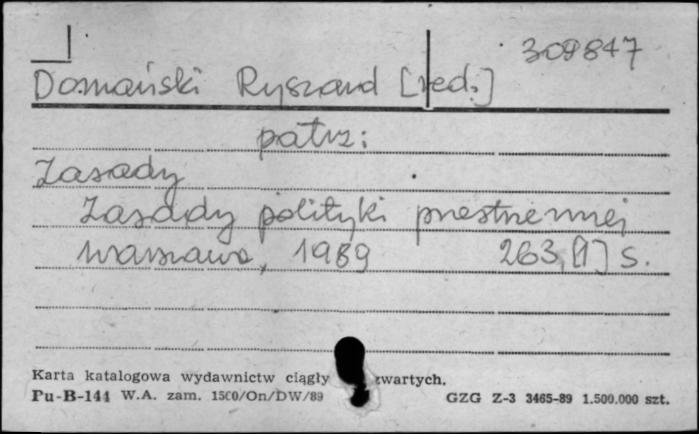 309847
Domański Ryszard [red.]
patrz:
Zasady
Zasady polityki przestrzennej
Warszawa, 1989 263,[1] s.
Karta katalogowa wydawnictw ciągły zwartych.
Pu-B-144 W.A. zam. 1500/On/DW/89 GZG Z-3 3465-89 1.500.000 szt.